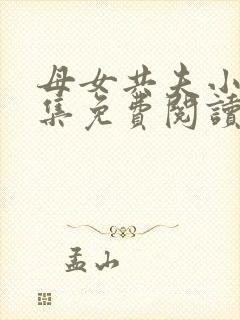 母女共夫小
集免費閱讀
孟山